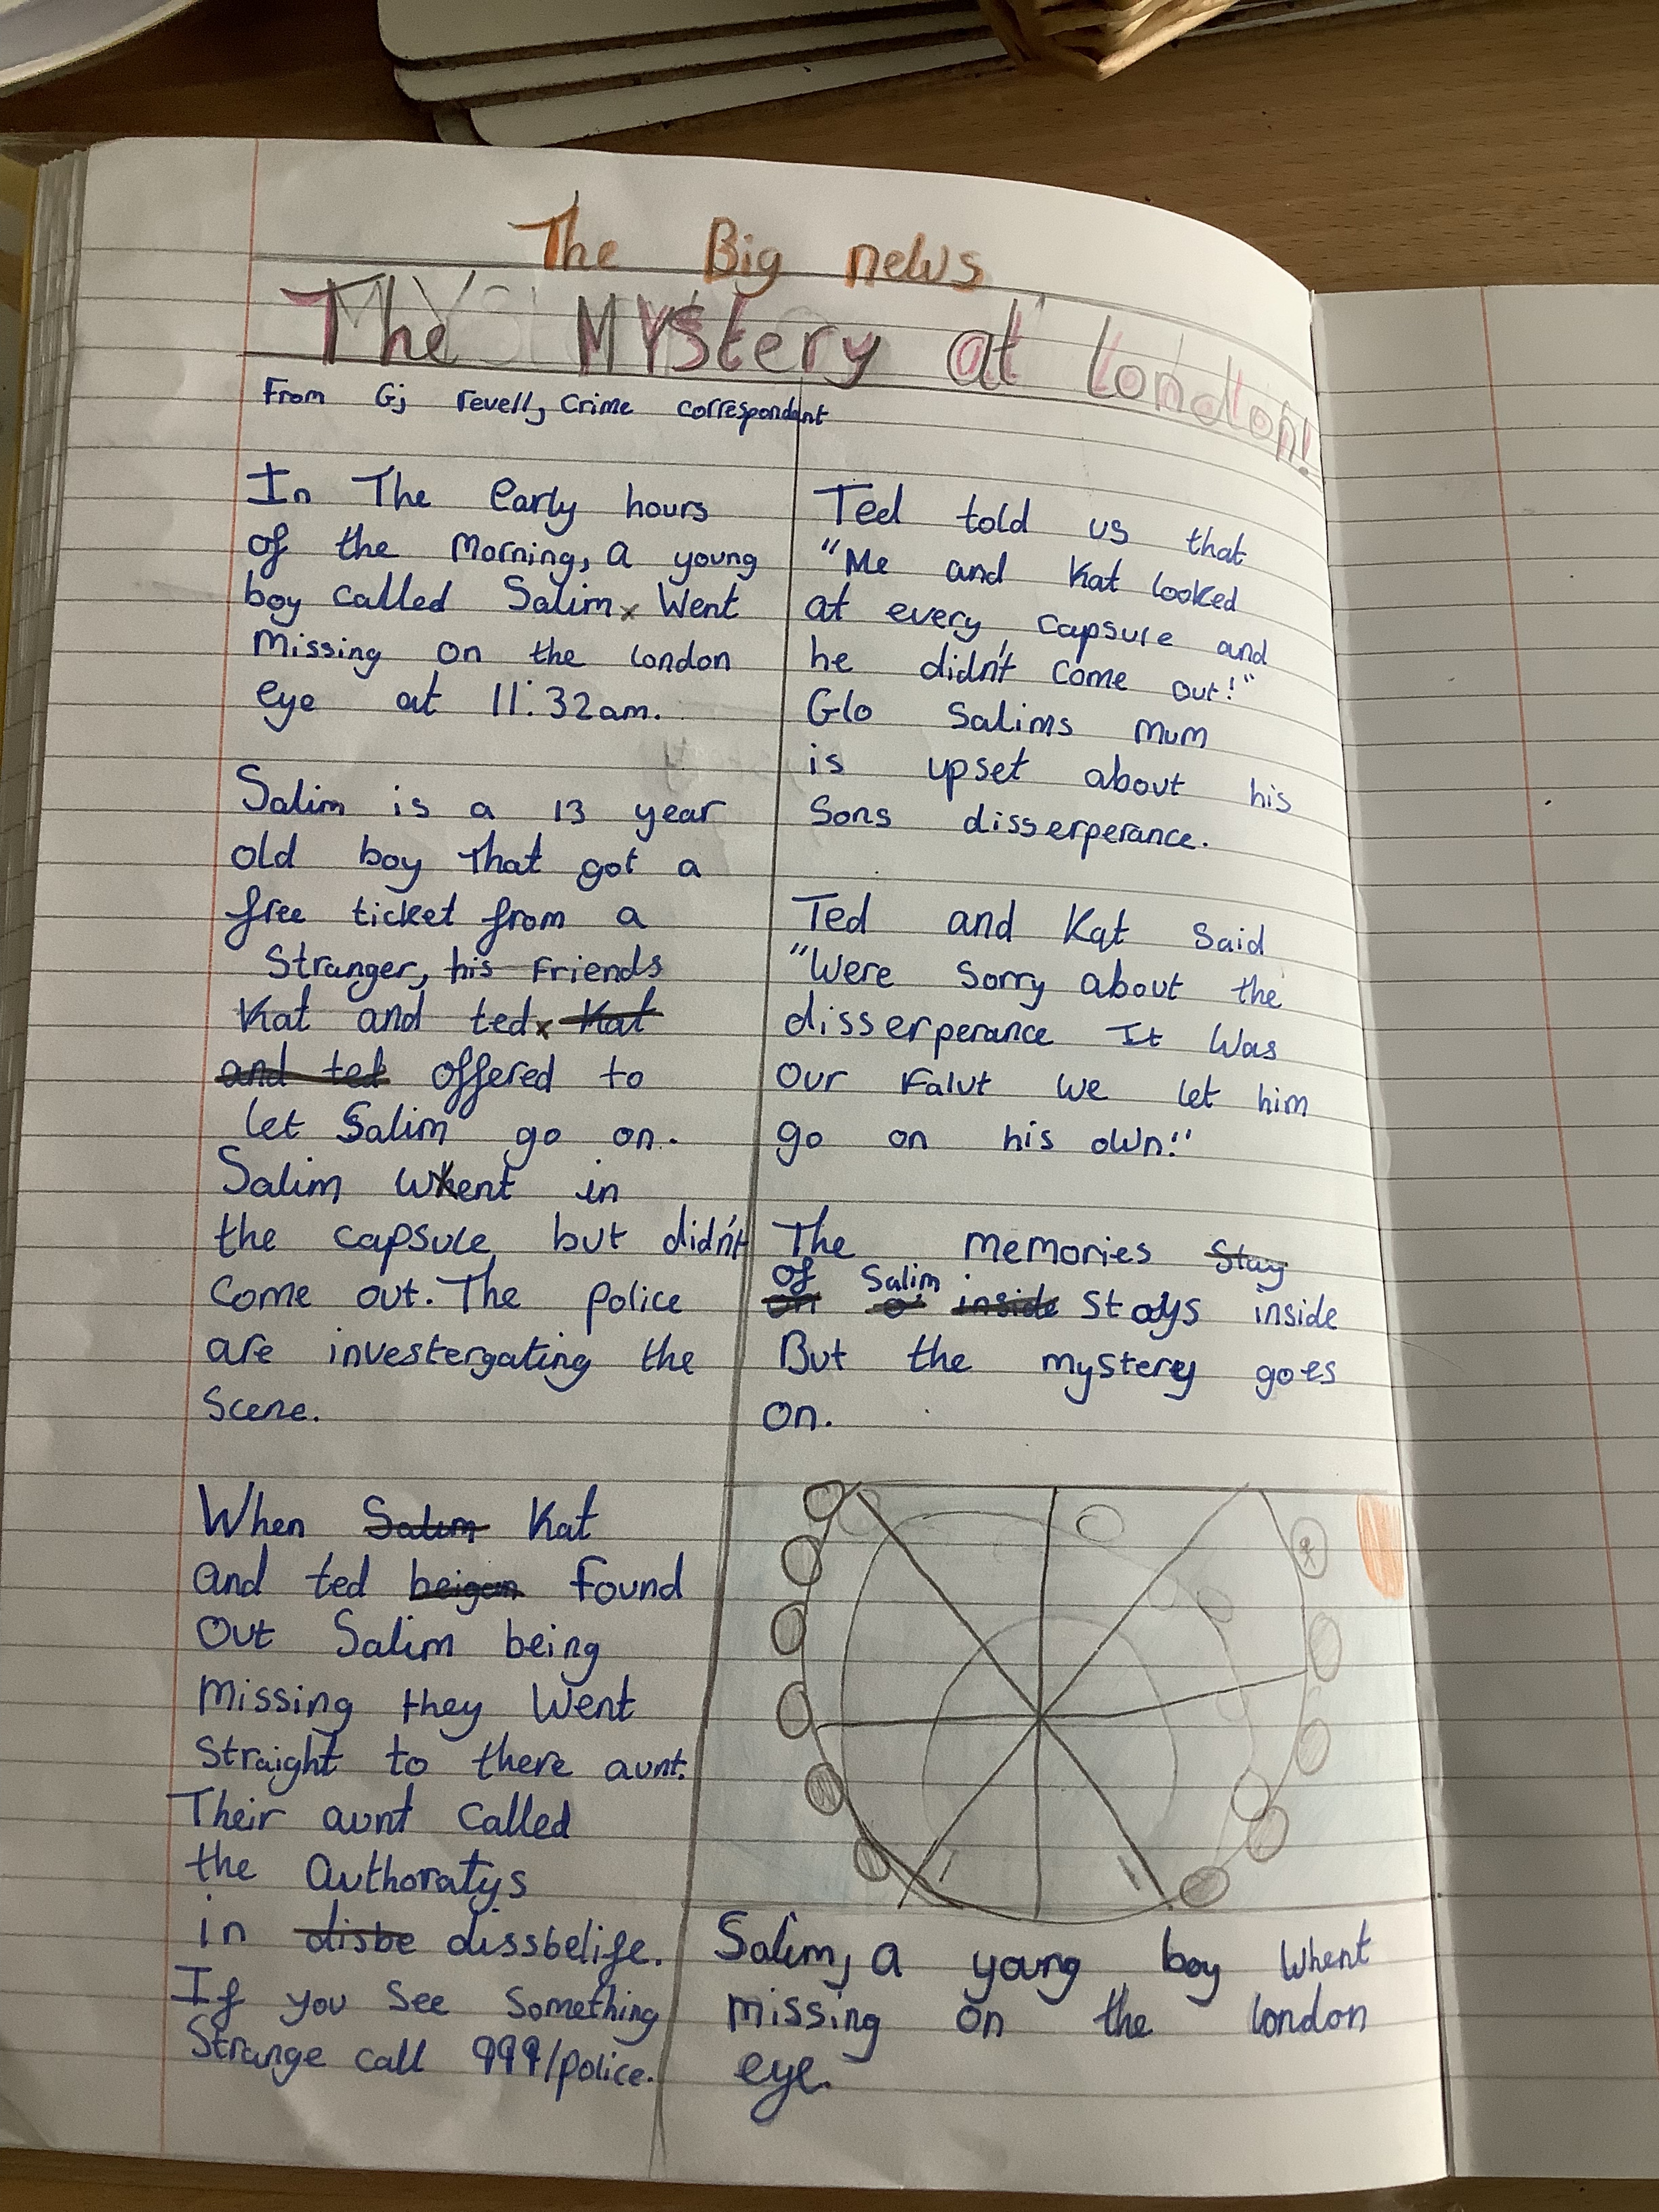 The Big news
The MYStery at london!
From Gj revell, Crime correspondent
In The early hours
of the Morning, a young
boy called Salim Went
Missing on the london
eye at 11:32am.
Salim is a 13 year
old boy that got a
free ticket from a
Stranger, his Friends
Kat and ted Kat
and ted offered to
let Salim go on.
Salim whent in
the capsule, but didn't
Come out. The Police
are investergating the
Scene.
When Salim Kat
and ted beigan found
out Salim being
Missing they Went
Straight to there aunt.
Their aunt called
the Authoratys
in disbe dissbelife.
If you See Something
Strange call 999/police.
Ted told us that
"Me and Kat looked
at every capsure and
he didn't come out!"
Glo Salims mum
is upset about his
Sons disserperance.
Ted and Kat Said
"Were Sorry about the
disserperance It Was
our Falut we let him
go on his own!"
The memories Stay
of Salim
inside Stays inside
But the mystery goes
on.
Salim, a young boy whent
missing on the london
eye.